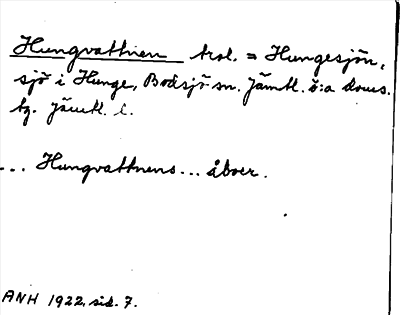 Hungvattnen trol. = Hungesjön,
sjö i Hunge, Bodsjö sn. Jämtl. ö:a doms.
tg. Jämtl. l.
... Hungvattnens ... åboer.
ANH 1922, sid. 7.